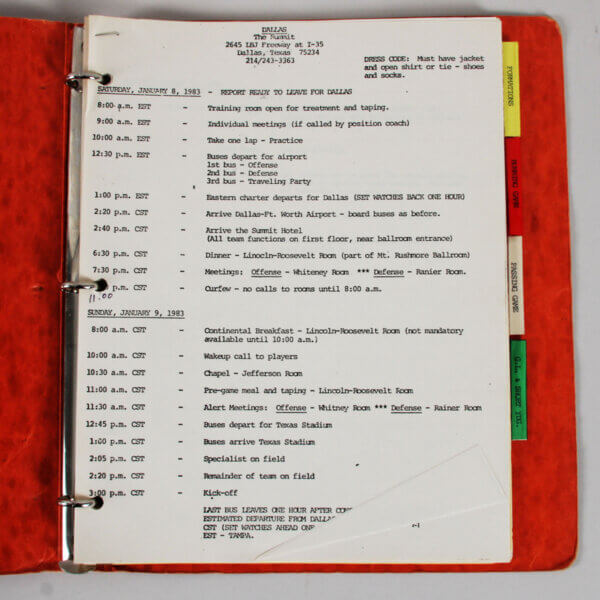 DALLAS
The Summit
2645 LBJ Freeway at I-35
Dallas, Texas 75234
214/243-3363
DRESS CODE: Must have jacket
and open shirt or tie - shoes
and socks.
SATURDAY, JANUARY 8, 1983 - REPORT READY TO LEAVE FOR DALLAS
8:00 a.m. EST - Training room open for treatment and taping.
9:00 a.m. EST - Individual meetings (if called by position coach)
10:00 a.m. EST - Take one lap - Practice
12:30 p.m. EST - Buses depart for airport
1st bus - Offense
2nd bus - Defense
3rd bus - Traveling Party
1:00 p.m. EST - Eastern charter departs for Dallas (SET WATCHES BACK ONE HOUR)
2:20 p.m. CST - Arrive Dallas-Ft. Worth Airport - board buses as before.
2:40 p.m. CST - Arrive the Summit Hotel
(All team functions on first floor, near ballroom entrance)
6:30 p.m. CST - Dinner - Lincoln-Roosevelt Room (part of Mt. Rushmore Ballroom)
7:30 p.m. CST - Meetings: Offense - Whiteney Room *** Defense - Ranier Room.
p.m. CST - Curfew - no calls to rooms until 8:00 a.m.
11:00
SUNDAY, JANUARY 9, 1983
8:00 a.m. CST - Continental Breakfast - Lincoln-Roosevelt Room (not mandatory
available until 10:00 a.m.)
10:00 a.m. CST - Wakeup call to players
10:30 a.m. CST - Chapel - Jefferson Room
11:00 a.m. CST - Pre-game meal and taping - Lincoln-Roosevelt Room
11:30 a.m. CST - Alert Meetings: Offense - Whitney Room *** Defense - Rainer Room
12:45 p.m. CST - Buses depart for Texas Stadium
1:00 p.m. CST - Buses arrive Texas Stadium
2:05 p.m. CST - Specialist on field
2:20 p.m. CST - Remainder of team on field
3:00 p.m. CST - Kick-off
LAST BUS LEAVES ONE HOUR AFTER
ESTIMATED DEPARTURE FROM
CST (SET WATCHES AHEAD
EST - TAMPA.
FORMATIONS
RUNNING GAME
PASSING GAME
G.L. & SHORT YDG.